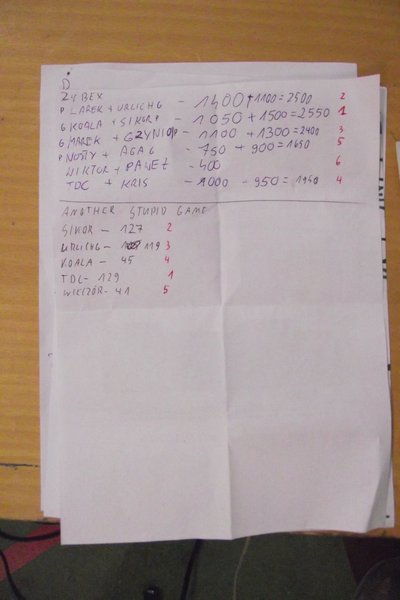 D
ZYBEX
P LAREK + URLICHG - 1400 + 1100 = 2500 2
G KOALA + SIKOR P - 1050 + 1500 = 2550 1
G MAREK + GZYNIO P - 1100 + 1300 = 2400 3
P NOSTY + AGAG - 750 + 900 = 1650 5
WIKTOR + PAWEŁ - 400 6
TDC + KRIS - 1000 - 950 = 1950 4
ANOTHER STUPID GAME
SIKOR - 127 2
URLICHG - 119 3
KOALA - 45 4
TDC - 129 1
WIECZÓR - 41 5